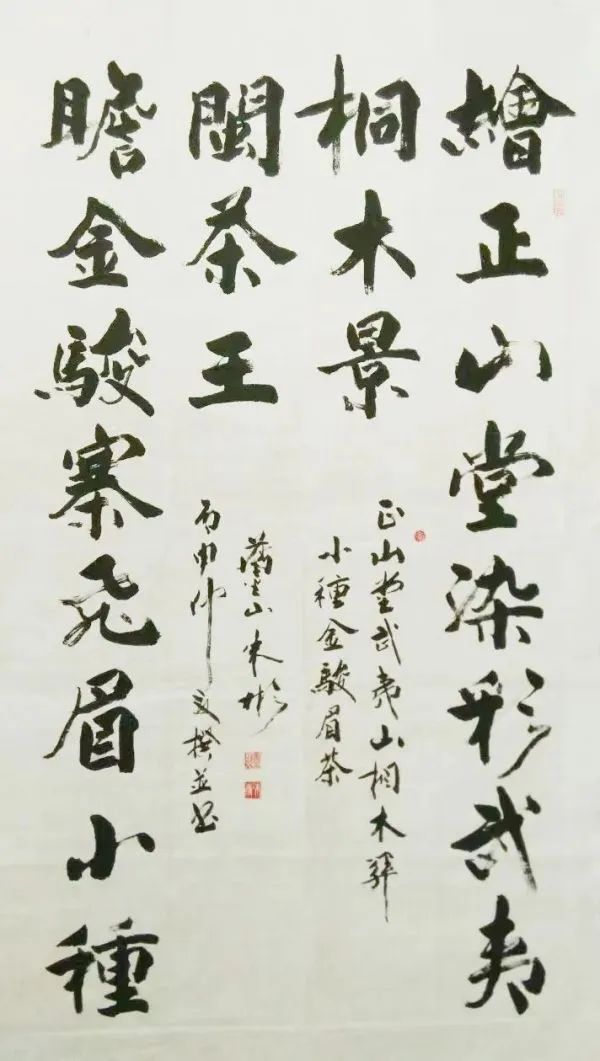 繪正山堂染彩武夷
桐木景
正山堂武夷山桐木
小種金駿眉茶
瞻金駿寨飛眉小種
閩茶王
山朱彬
丙申仲夏撰並書